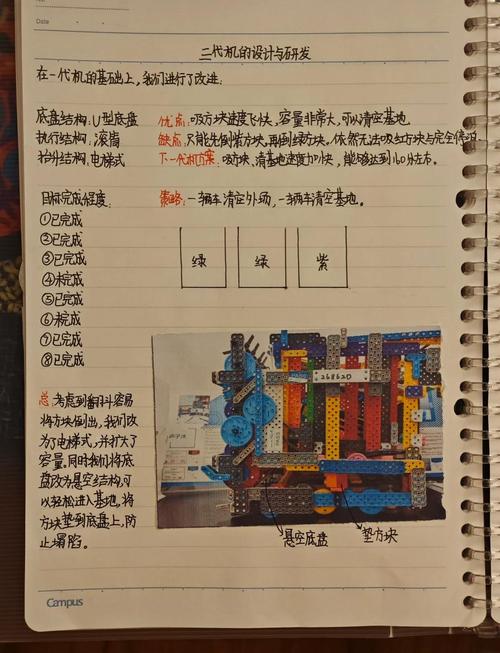 No.
Date
二代机的设计与研发
在一代机的基础上,我们进行了改进:
底盘结构:U型底盘 优点:吸方块速度飞快,容量非常大,可以清空基地
执行结构:滚筒 缺点:只能先倒紫方块,再倒绿方块,依然无法吸红方块与完全停泊.
抬升结构:电梯式 下一代机方案:吸方块,清基地速度加快,能够达到160分左右。
目标完成程度: 策略:一辆车清空外场,一辆车清空基地。
①已完成
②已完成
③已完成
④未完成
⑤已完成
⑥未完成
⑦已完成
⑧已完成
绿 绿 紫
26862D
总:考虑到翻斗容易
将方块倒出,我们改
为了电梯式,并扩大了
容量。同时我们将底
盘改为悬空结构,可
以轻松进入基地。将
方块垫到底盘上,防
止塌陷。
悬空底盘 垫方块
Campus